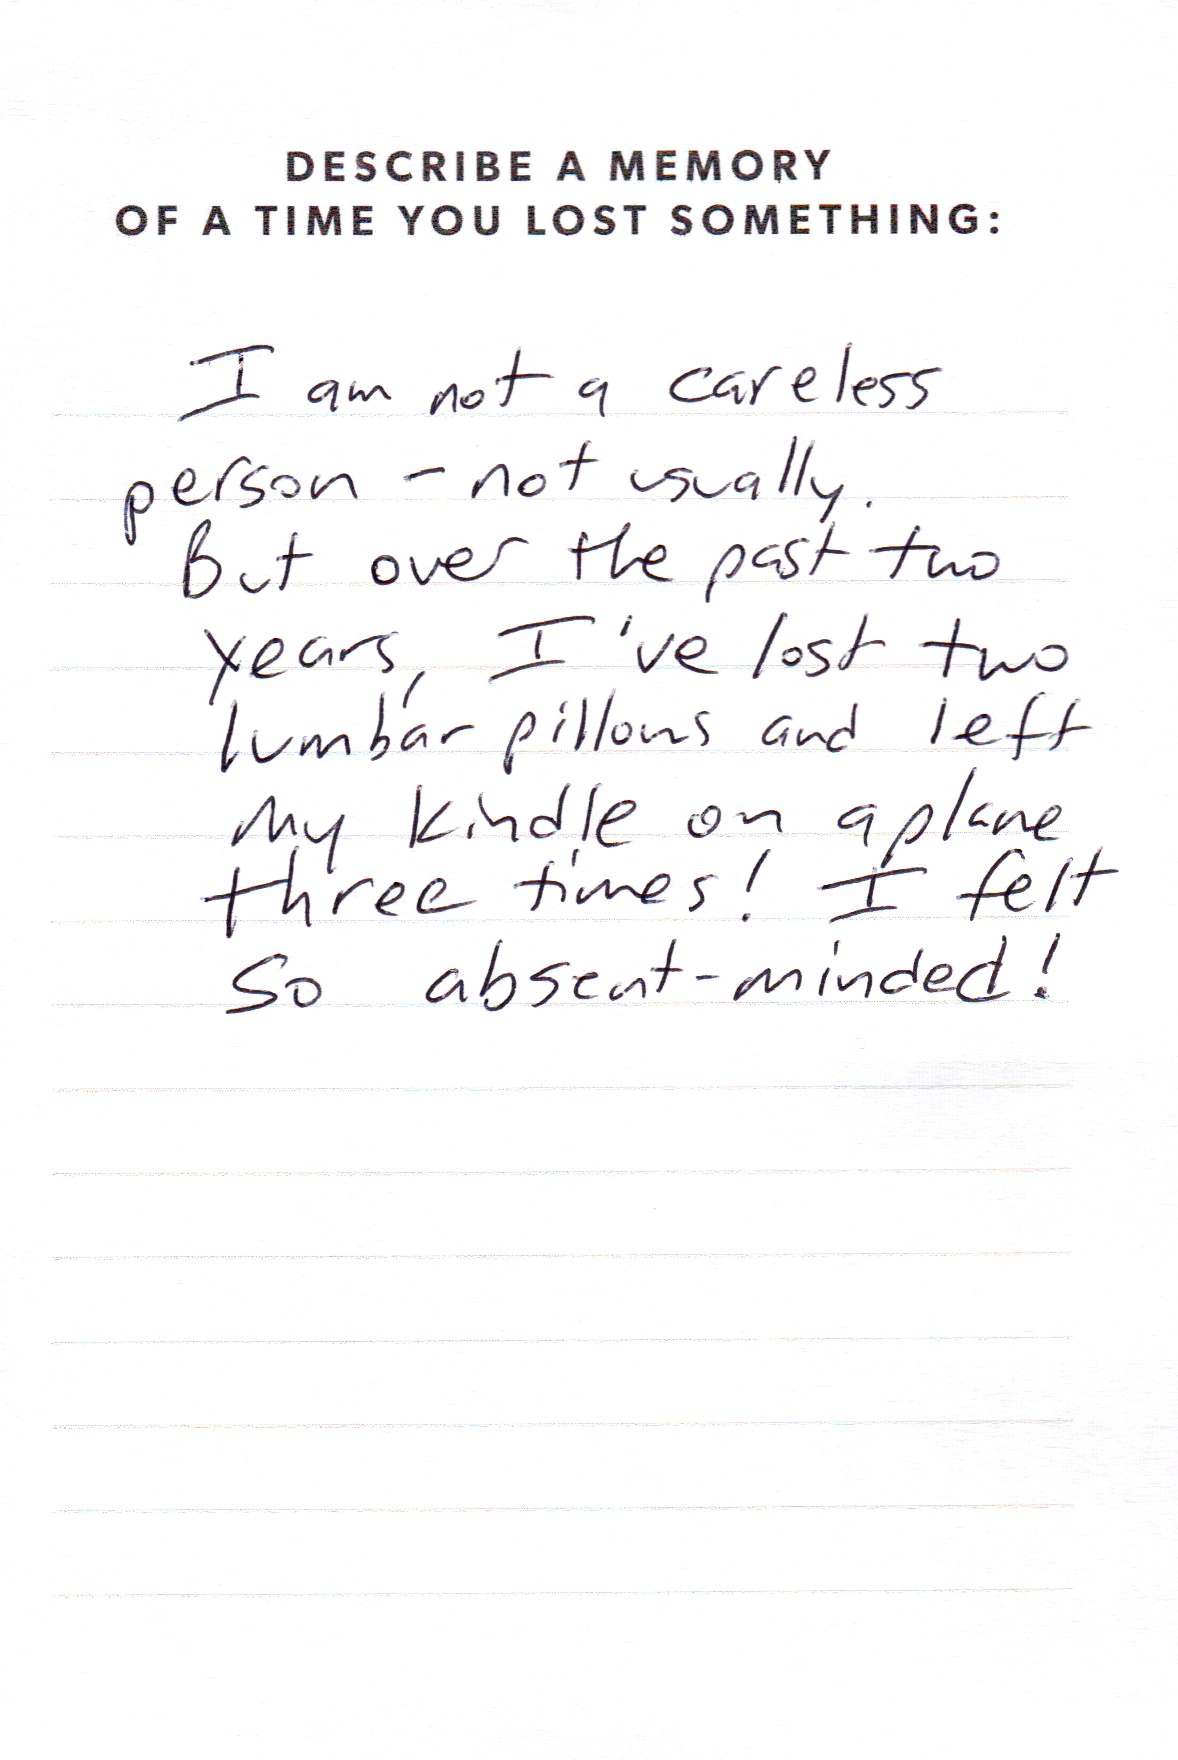 DESCRIBE A MEMORY
OF A TIME YOU LOST SOMETHING:
I am not a careless
person - not usually.
But over the past two
years, I've lost two
lumbar pillows and left
my kindle on a plane
three times! I felt
so absent-minded!